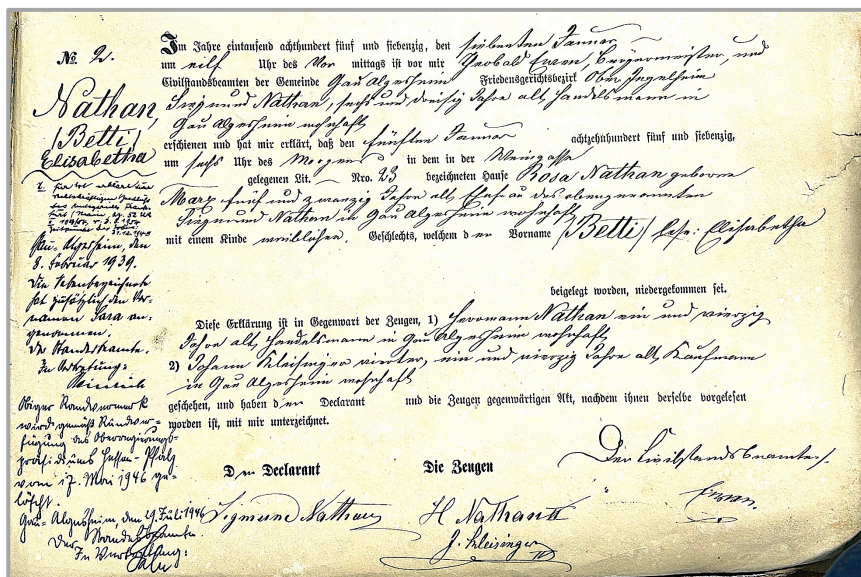 No. 2.
Nathan,
/Betti/
Elisabetha
Gau-Algesheim, den
8. Februar 1939.
Die Nebenbezeichnete
hat zusätzlich den Vor-
namen Sara an-
genommen.
Der Standesbeamte.
In Vertretung:
Obiger Randvermerk
wird gemäß Rundver-
fügung des Oberregierungs-
präsidiums Hessen-Pfalz
vom 17. Mai 1946 ge-
löscht
Gau-Algesheim, den 29. Juli 1946
Der Standesbeamte
In Vertretung:
Im Jahre eintausend achthundert fünf und siebenzig, den siebenten Januar
um eilf Uhr des Vor mittags ist vor mir Bürgermeister, und
Civilstandsbeamten der Gemeinde Gau Algesheim Friedensgerichtsbezirk Ober Ingelheim
Siegmund Nathan, sechs und dreisig Jahre alt, Handelsmann in
Gau Algesheim wohnhaft
erschienen und hat mir erklärt, daß den fünften Januar achtzehnhundert fünf und siebenzig,
um sechs Uhr des Morgens in dem in der Weingasse
gelegenen Lit. — Nro. 23 bezeichneten Hause Rosa Nathan geborene
Marx fünf und zwanzig Jahre alt, Ehefrau des obengenannten
Siegmund Nathan in Gau Algesheim wohnhaft
mit einem Kinde weiblichen Geschlechts, welchem der Vorname /Betti/ Elisabetha
beigelegt worden, niedergekommen sei.
Diese Erklärung ist in Gegenwart der Zeugen, 1) Herrmann Nathan ein und vierzig
Jahre alt, Handelsmann in Gau Algesheim wohnhaft
2) Johann Kleisinger vierter, ein und vierzig Jahre alt, Kaufmann
in Gau Algesheim wohnhaft
geschehen, und haben der Declarant und die Zeugen gegenwärtigen Akt, nachdem ihnen derselbe vorgelesen
worden ist, mit mir unterzeichnet.
Der Declarant Die Zeugen Der Civilstandsbeamte.
Sigmund Nathan H Nathan II
J. Kleisinger IV